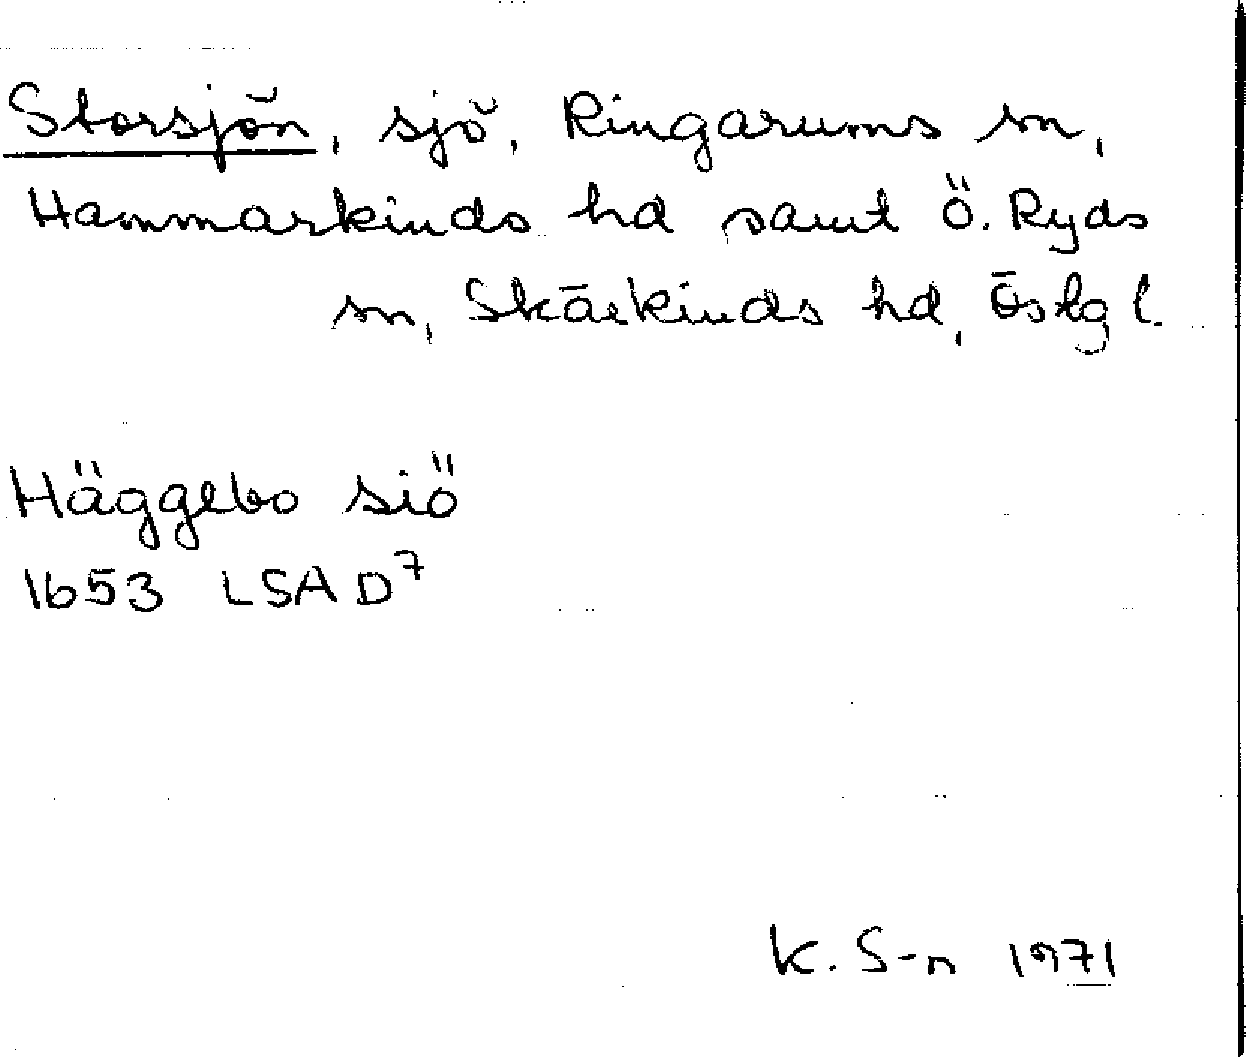 Storsjön, sjö, Ringarums sn,
Hammarkinds hd samt Ö. Ryds
sn, Skärkinds hd, Östg l.
Häggebo siö
1653 LSA D7
K. S-n 1971